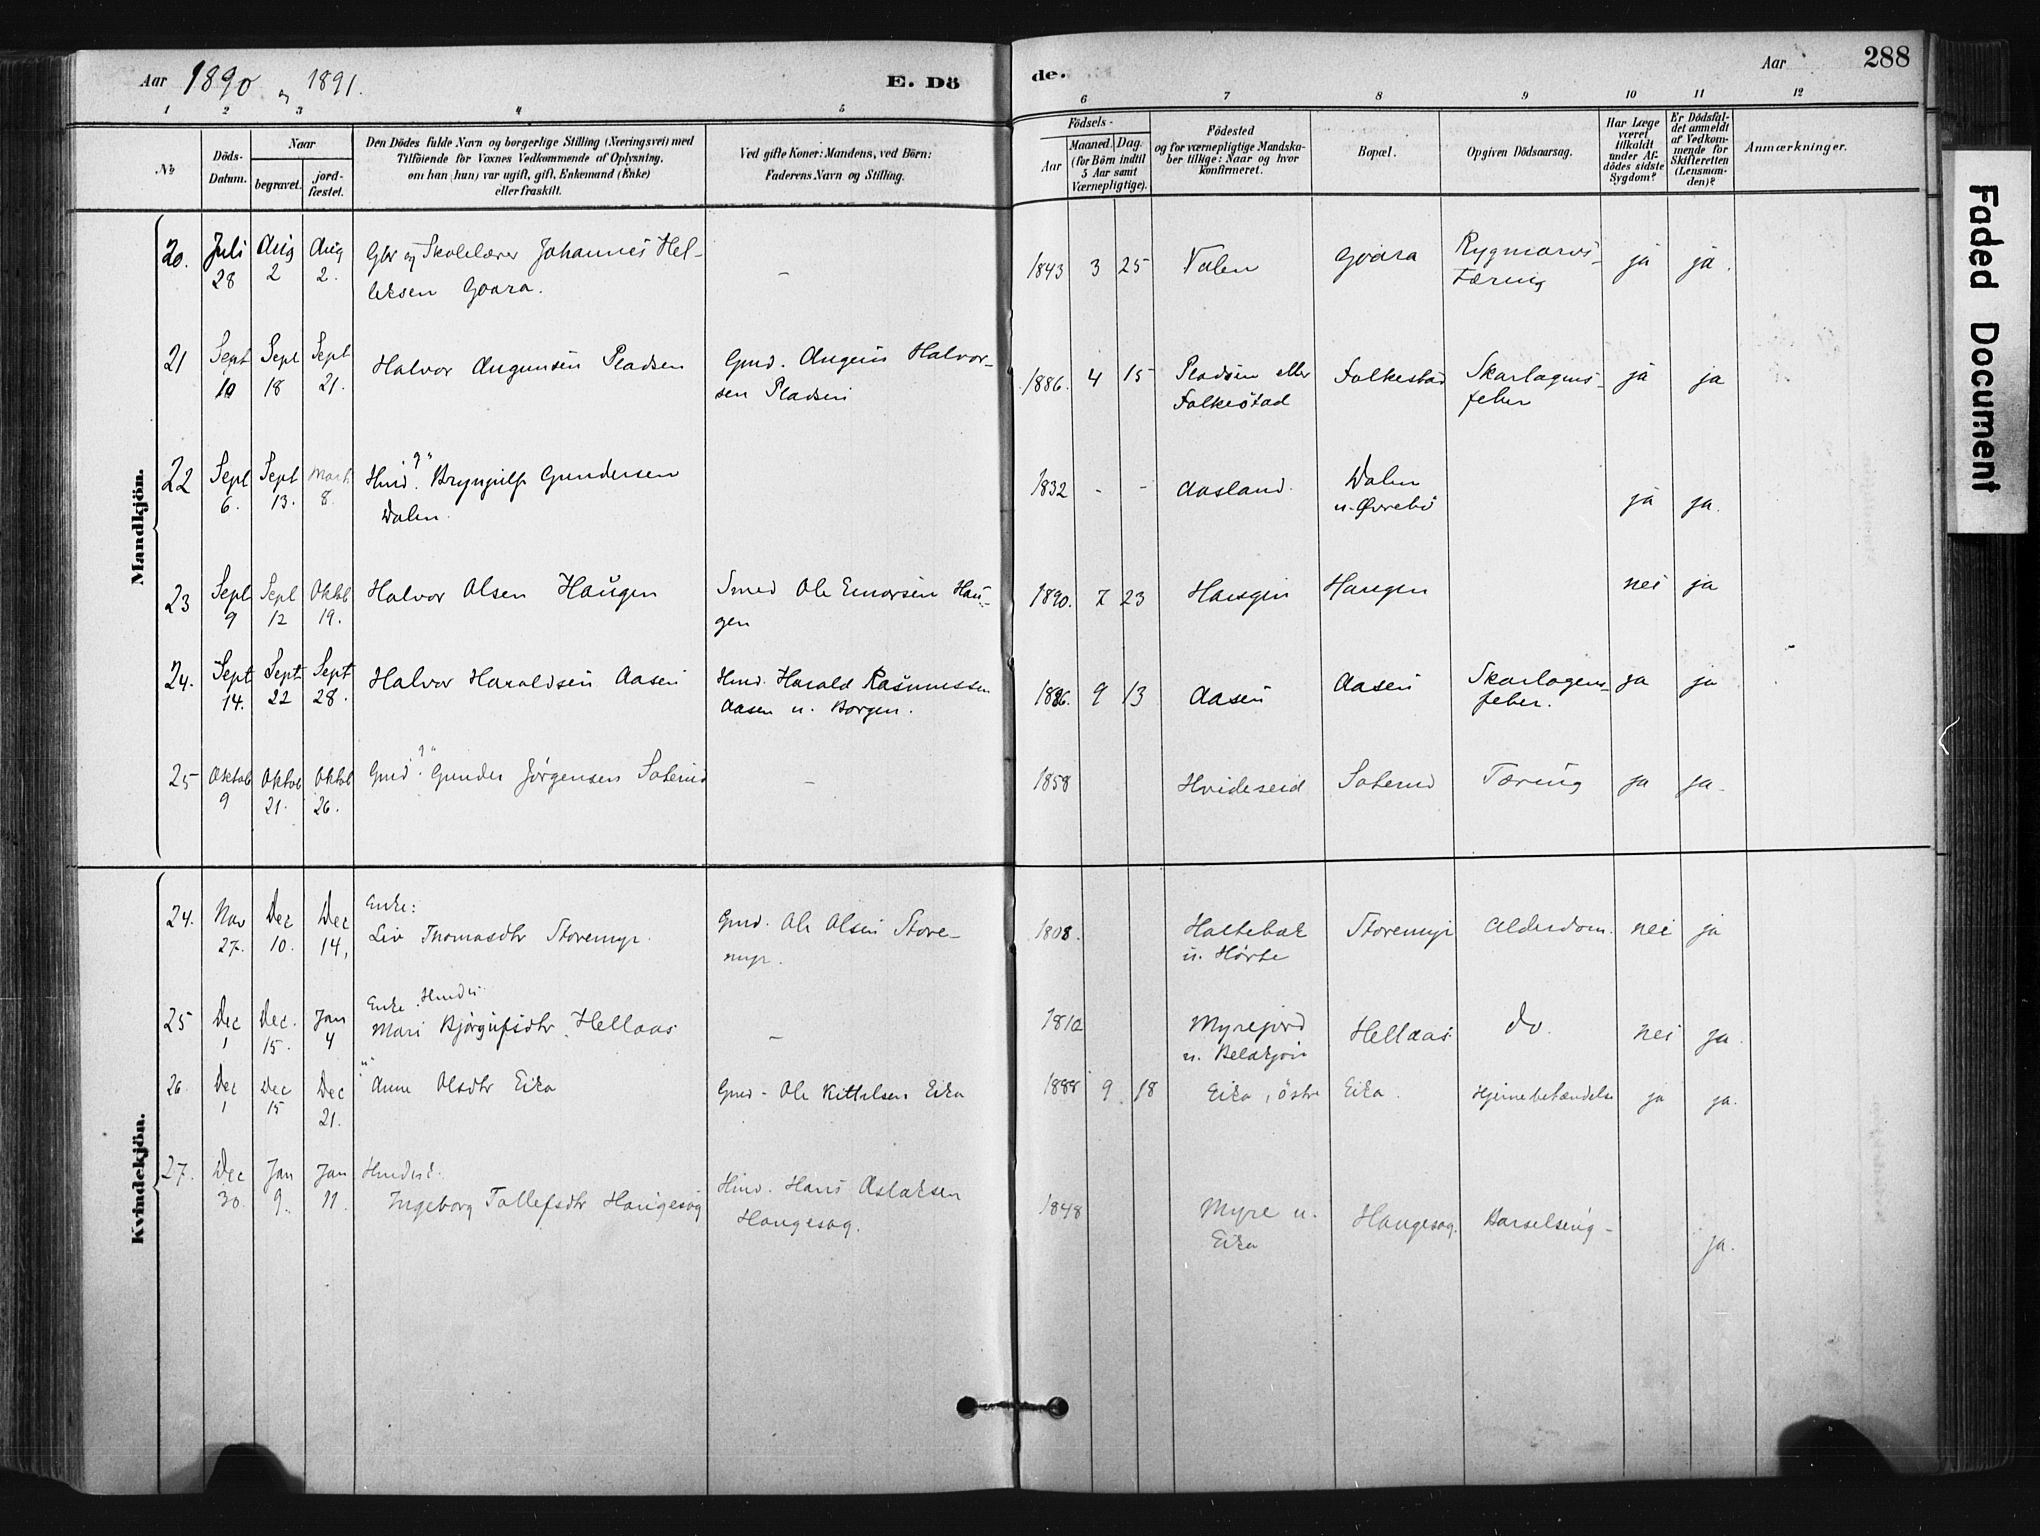 Aar 1890 og 1891.
E. Döde.
Aar
288
1 2 3 4 5 6 7 8 9 10 11 12
No
Döds-Datum.
Naar
begravet.
jord-fæstet.
Den Dödes fulde Navn og borgerlige Stilling (Næringsvei) med
Tilföiende for Voxnes Vedkommende af Oplysning,
om han (hun) var ugift, gift, Enkemand (Enke)
eller fraskilt.
Ved gifte Koner: Mandens, ved Börn:
Faderens Navn og Stilling.
Födsels-
Aar
Maaned. Dag.
(for Börn indtil
5 Aar samt
Værnepligtige).
Födested
og for værnepligtige Mandska-
ber tillige: Naar og hvor
konfirmeret.
Bopæl.
Opgiven Dödsaarsag.
Har Læge
været
tilkaldt
under Af-
dödes sidste
Sygdom?
Er Dödsfal-
det anmeldt
af Vedkom-
mende for
Skifteretten
(Lensman-
den)?
Anmærkninger.
Mandkjön.
20. Juli 28 Aug 2 Aug 2. Gbr og Skolelærer Johannes Hel-
leksen Goara. - 1843 3 25 Valen Goara Rygmarvs-
Tæring ja ja.
21 Sept 10 Sept 18 Sept 21. Halvor Augunsen Pladsen Gmd. Augun Halvor-
sen Pladsen 1886. 4 15 Pladsen eller
Folkestad Folkestad Skarlagens-
feber ja ja
22 Sept 6. Sept 13. Marts 8. Hmd. g. Brynjulf Gundersen
Dalen. 1832 - - Aasland. Dalen
u. Øvrebö ja ja.
23 Sept 9 Sept 12 Oktob 19. Halvor Olsen Haugen Smed Ole Einarsen Hau-
gen 1890. 7 23 Haugen Haugen nei ja
24. Sept 14. Sept 22 Sept 28. Halvor Haraldsen Aasen Hmd. Harald Rasmussen
Aasen u. Borgen. 1886. 9 13 Aasen Aasen Skarlagens-
feber. ja ja
25 Oktob 9 Oktob 21. Oktob 26. Gmd. g. Gunder Jörgensen Saterud - 1858 Hvideseid Saterud Tæring ja ja-
Kvindekjön.
24. Nov 27. Dec 10. Dec 14, Enke:
Liv Thomasdtr Storemyr. Gmd. Ole Olsen Store-
myr. 1808. Holtebæk
u. Hörte Storemyr Alderdom. nei ja
25 Dec 1 Dec. 15. Jan 4 Enke
Mari Björgufsdtr. Hellaas - 1812 Myrejord
u. Hellaas Do. nei ja.
26. Dec 1 Dec 15 Dec 21. Anne Olsdtr Eika Gmd - Ole Kittelsen Eika 1888 9 18 Eika, östre Eika. Hjernebetændelse ja ja.
27. Dec 30. Jan 9. Jan 11. Ingeborg Tollefsdtr Haugesag Hmd. Hans Aslaksen
Haugesag. 1848 Myre u.
Eika Haugesag. Barselseng- ja.
Faded Document